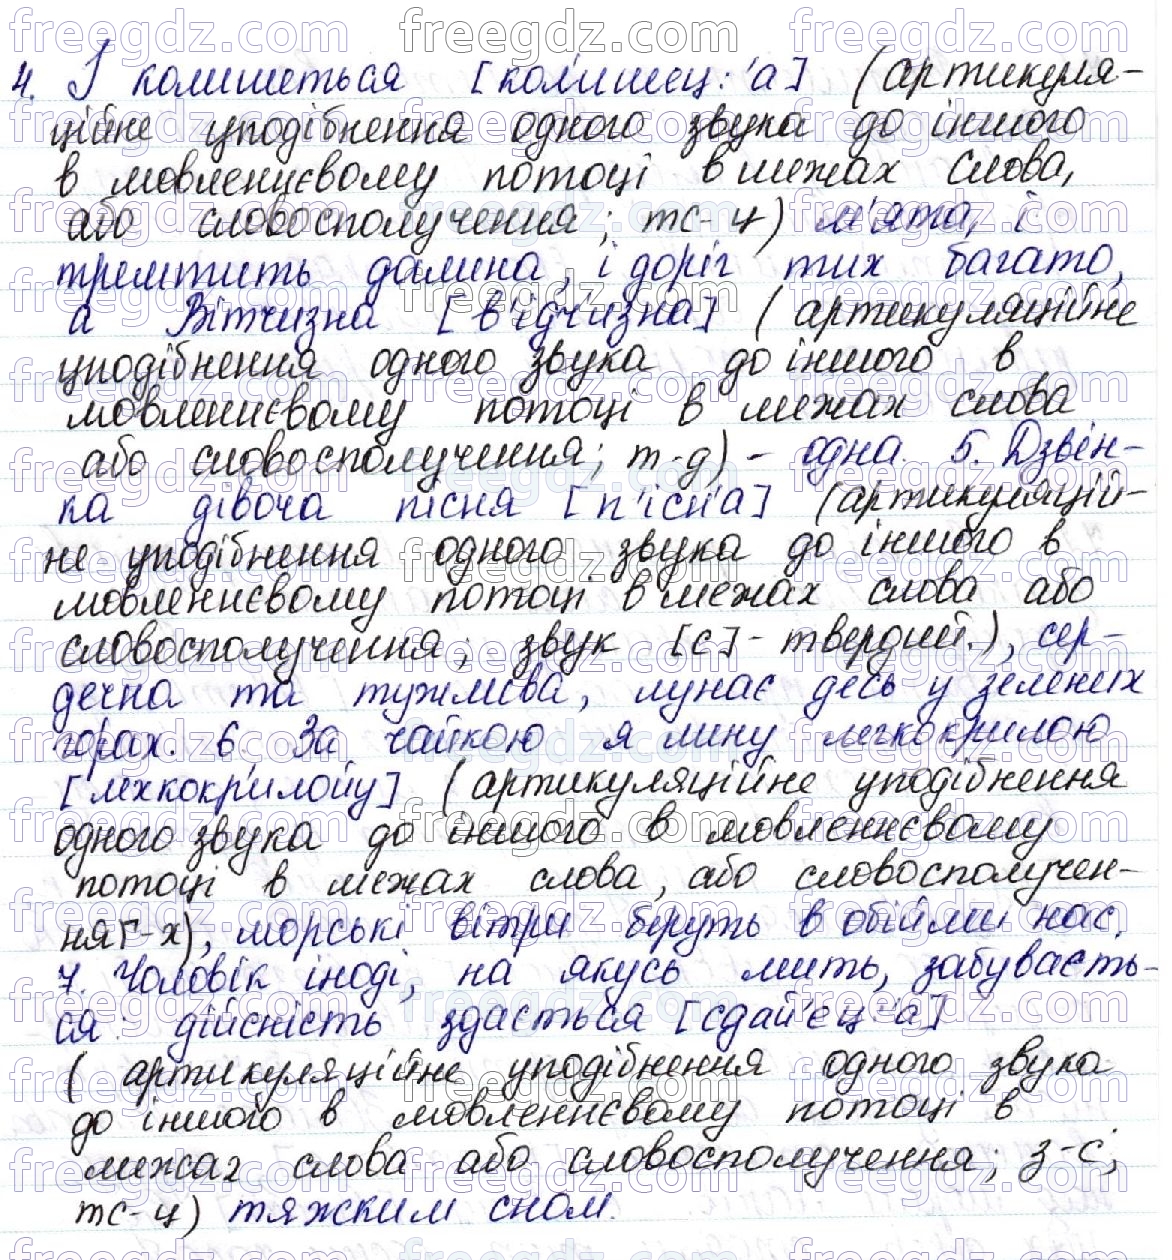 4. І колишеться [коли́шец:'а] (артикуля-
ційне уподібнення одного звука до іншого
в мовленнєвому потоці в межах слова,
або словосполучення; тс-ц) м'ята, і
тремтить долина, і доріг тих багато,
а Вітчизна [в'ідчизна] (артикуляційне
уподібнення одного звука до іншого в
мовленнєвому потоці в межах слова
або словосполучення; т-д) - одна. 5. Дзвін-
ка дівоча пісня [п'існ'а] (артикуляцій-
не уподібнення одного звука до іншого в
мовленнєвому потоці в межах слова або
словосполучення; звук [с] - твердий.), сер-
дечна та тужлива, лунає десь у зелених
горах. 6. За чайкою я лину легкокрилою
[лехкокри́лойу] (артикуляційне уподібнення
одного звука до іншого в мовленнєвому
потоці в межах слова, або словосполучен-
ня г-х), морські вітри беруть в обійми нас.
7. Чоловік іноді, на якусь мить, забуваєть-
ся: дійсність здається [сдай'ец:'а]
( артикуляційне уподібнення одного звука
до іншого в мовленнєвому потоці в
межах слова або словосполучення; з-с;
тс-ц) тяжким сном.
freegdz.com